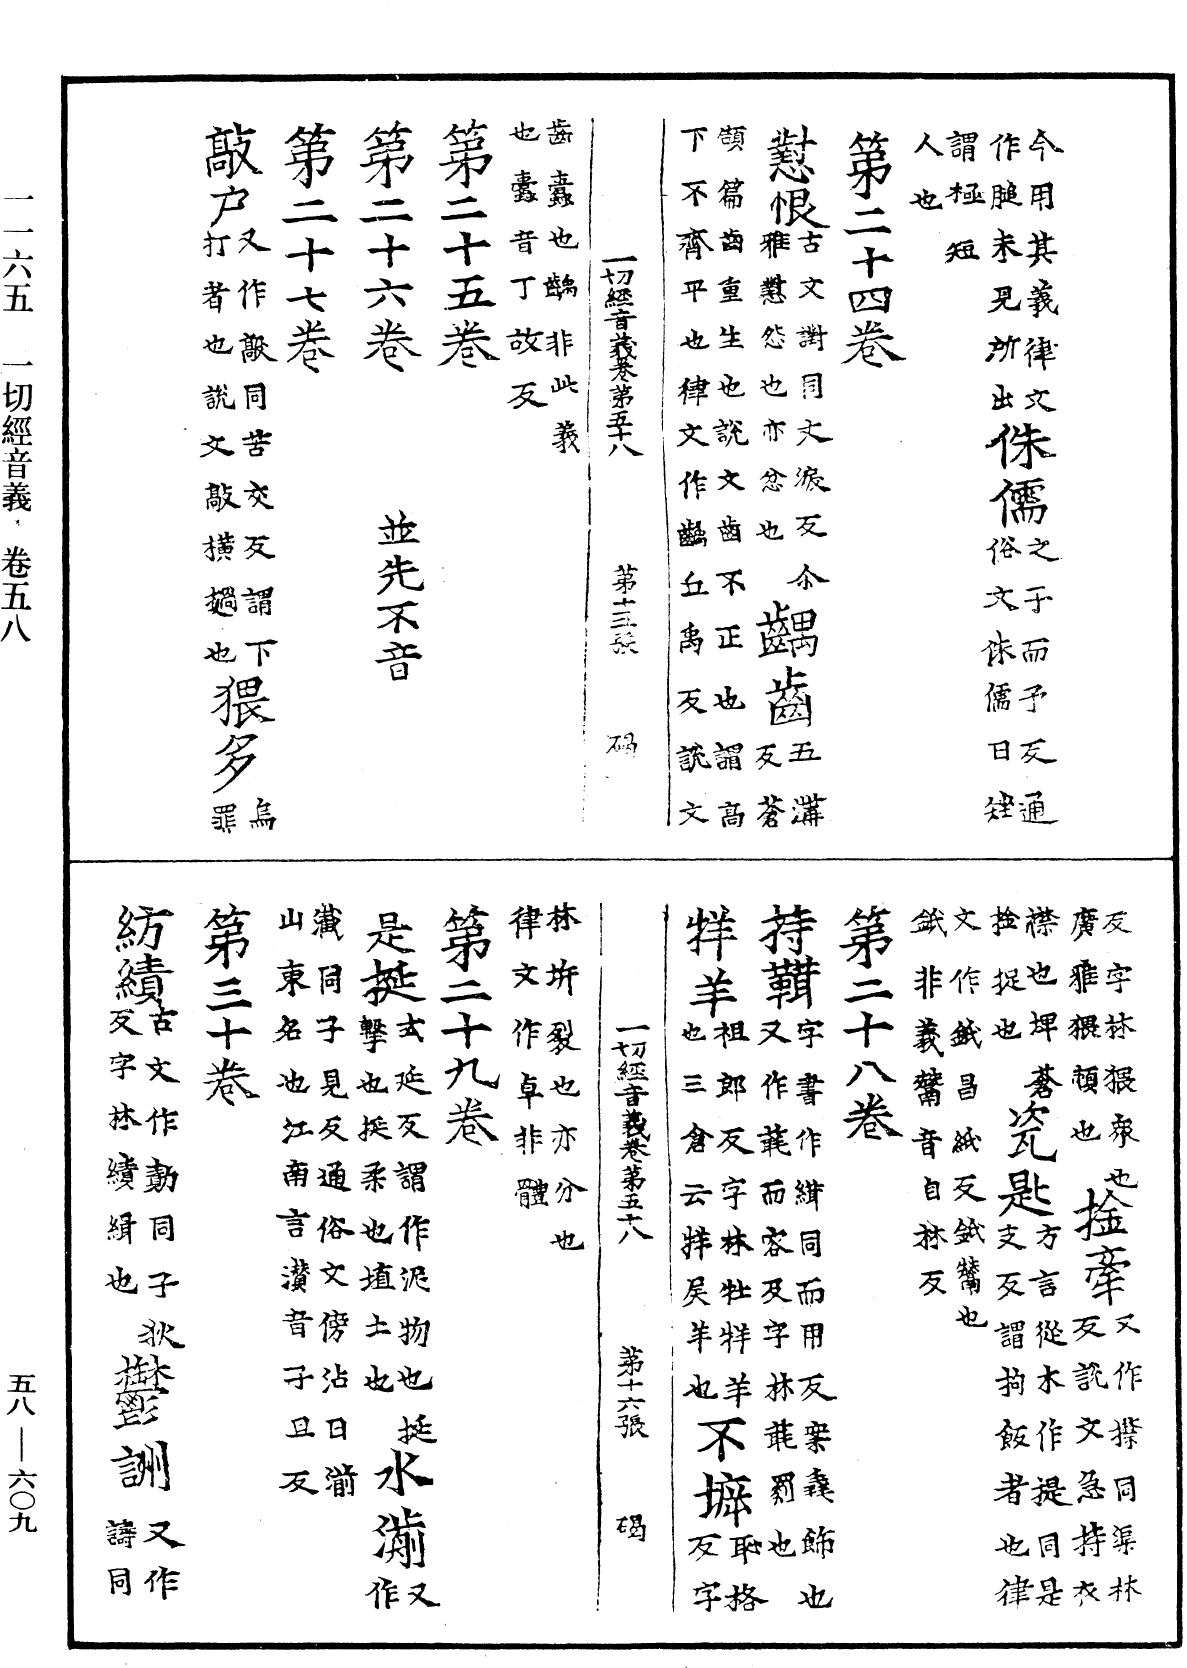 今用其義律文
作腄未見所出
侏儒
之于而予反通
俗文侏儒曰矬
謂極短
人也
第二十四卷
懟恨
古文對同丈淚反尒
雅懟怨也亦忿也
齵齒
五溝
反蒼
頡篇齒重生也說文齒不正也謂高
下不齊平也律文作齲丘禹反說文
一切經音義卷第五十八 第十五張 碣
齒蠹也齲非此義
也蠹音丁故反
第二十五卷
第二十六卷 並先不音
第二十七卷
敲户
又作毃同苦交反謂下
打者也說文敲橫撾也
猥多
烏
罪
反字林猥衆也
廣雅猥頓也
捦牽
又作㩒同渠林
反說文急持衣
襟也埤蒼
捦捉也
瓷匙
方言從木作提同是
支反謂拘飯者也律
文作鈘昌紙反鈘鬵也
鈘非義鬵音自林反
第二十八卷
持
字書作同而用反飾也
又作而容反字林毦罽也
牂羊
祖郎反字林牡牂羊
也三倉云牂吳羊也
不㙤
恥格
反字
林坼裂也亦分也
律文作卓非體
第二十九卷
是挻
式延反謂作泥物也挻
擊也挻柔也埴土也
水湔
又
作
濺同子見反通俗文傍沾曰湔
山東名也江南言灒音子旦反
一切經音義卷第五十八 第十六張 碣
第三十卷
紡績
古文作勣同子狄
反字林績緝也
鬱詶
又作
譸同
一一六五 一切經音義·卷五八
五八—六〇九